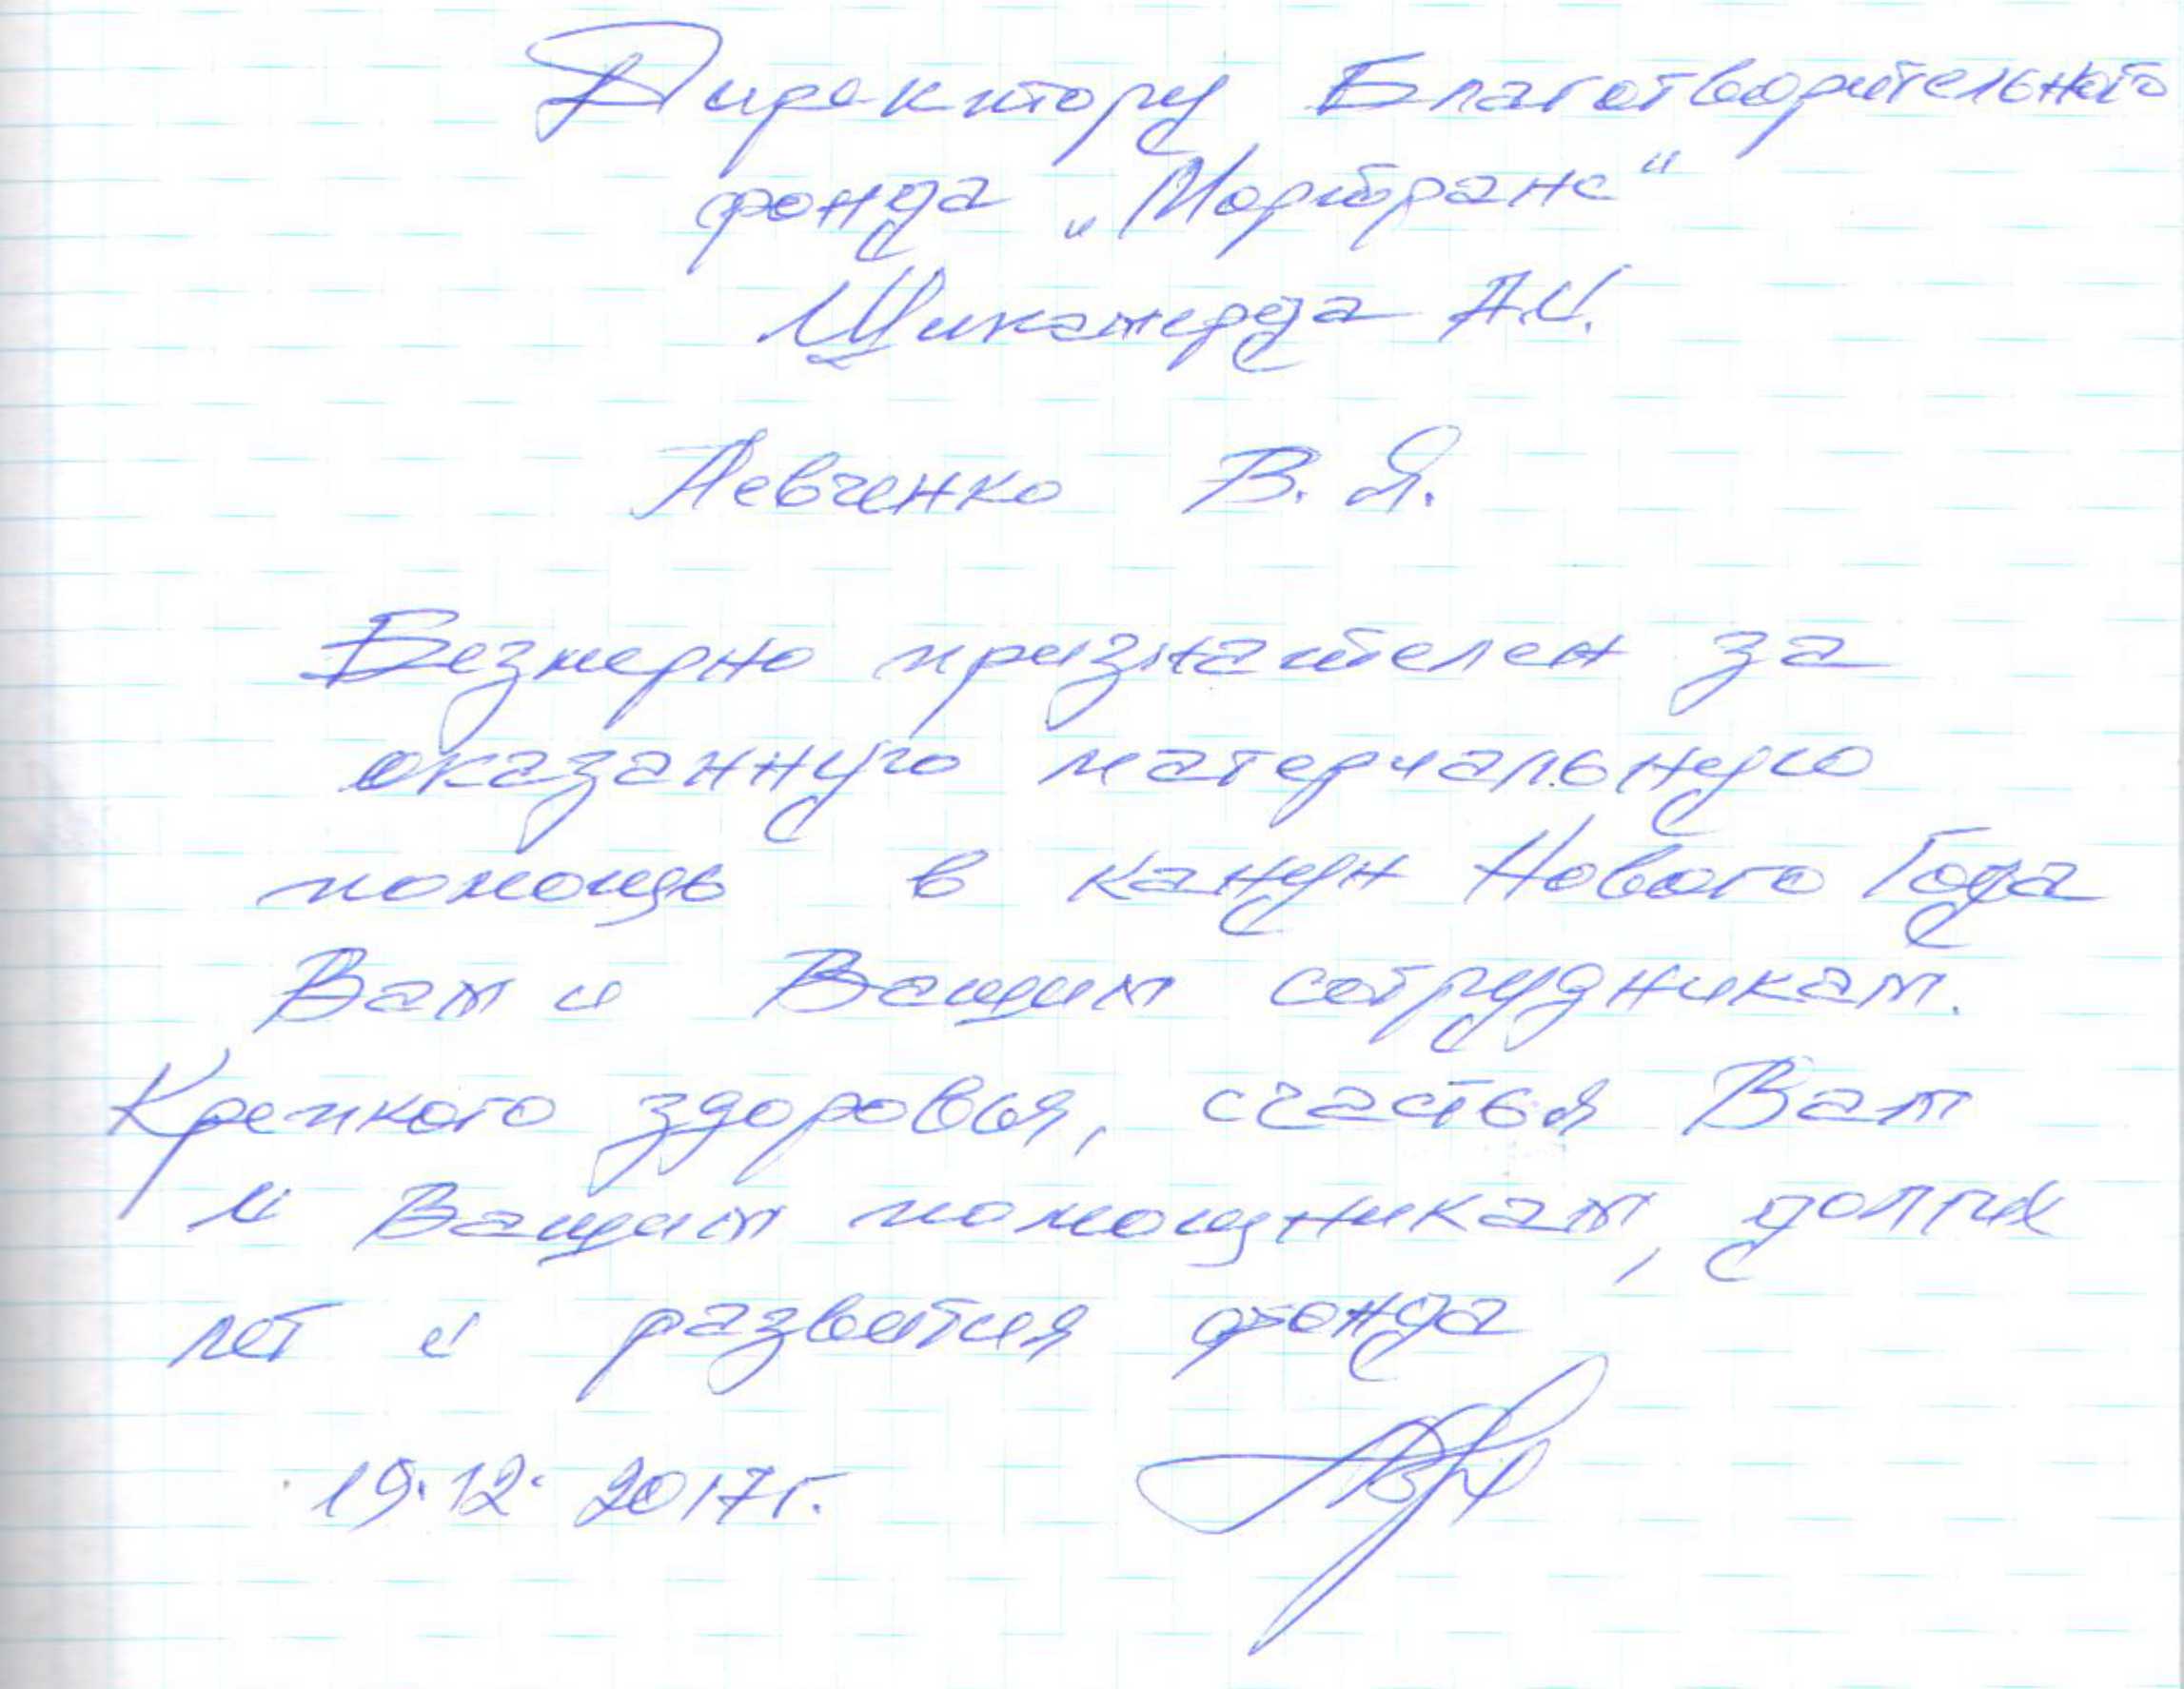 Директору Благотворительного
фонда „Мортранс“
Шикамерда А.И.
Левченко В. Я.
Безмерно признателен за
оказанную материальную
помощь в канун Нового Года
Вам и Вашим сотрудникам.
Крепкого здоровья, счастья Вам
и Вашим помощникам, долгих
лет и развития фонда
19.12.2017г.